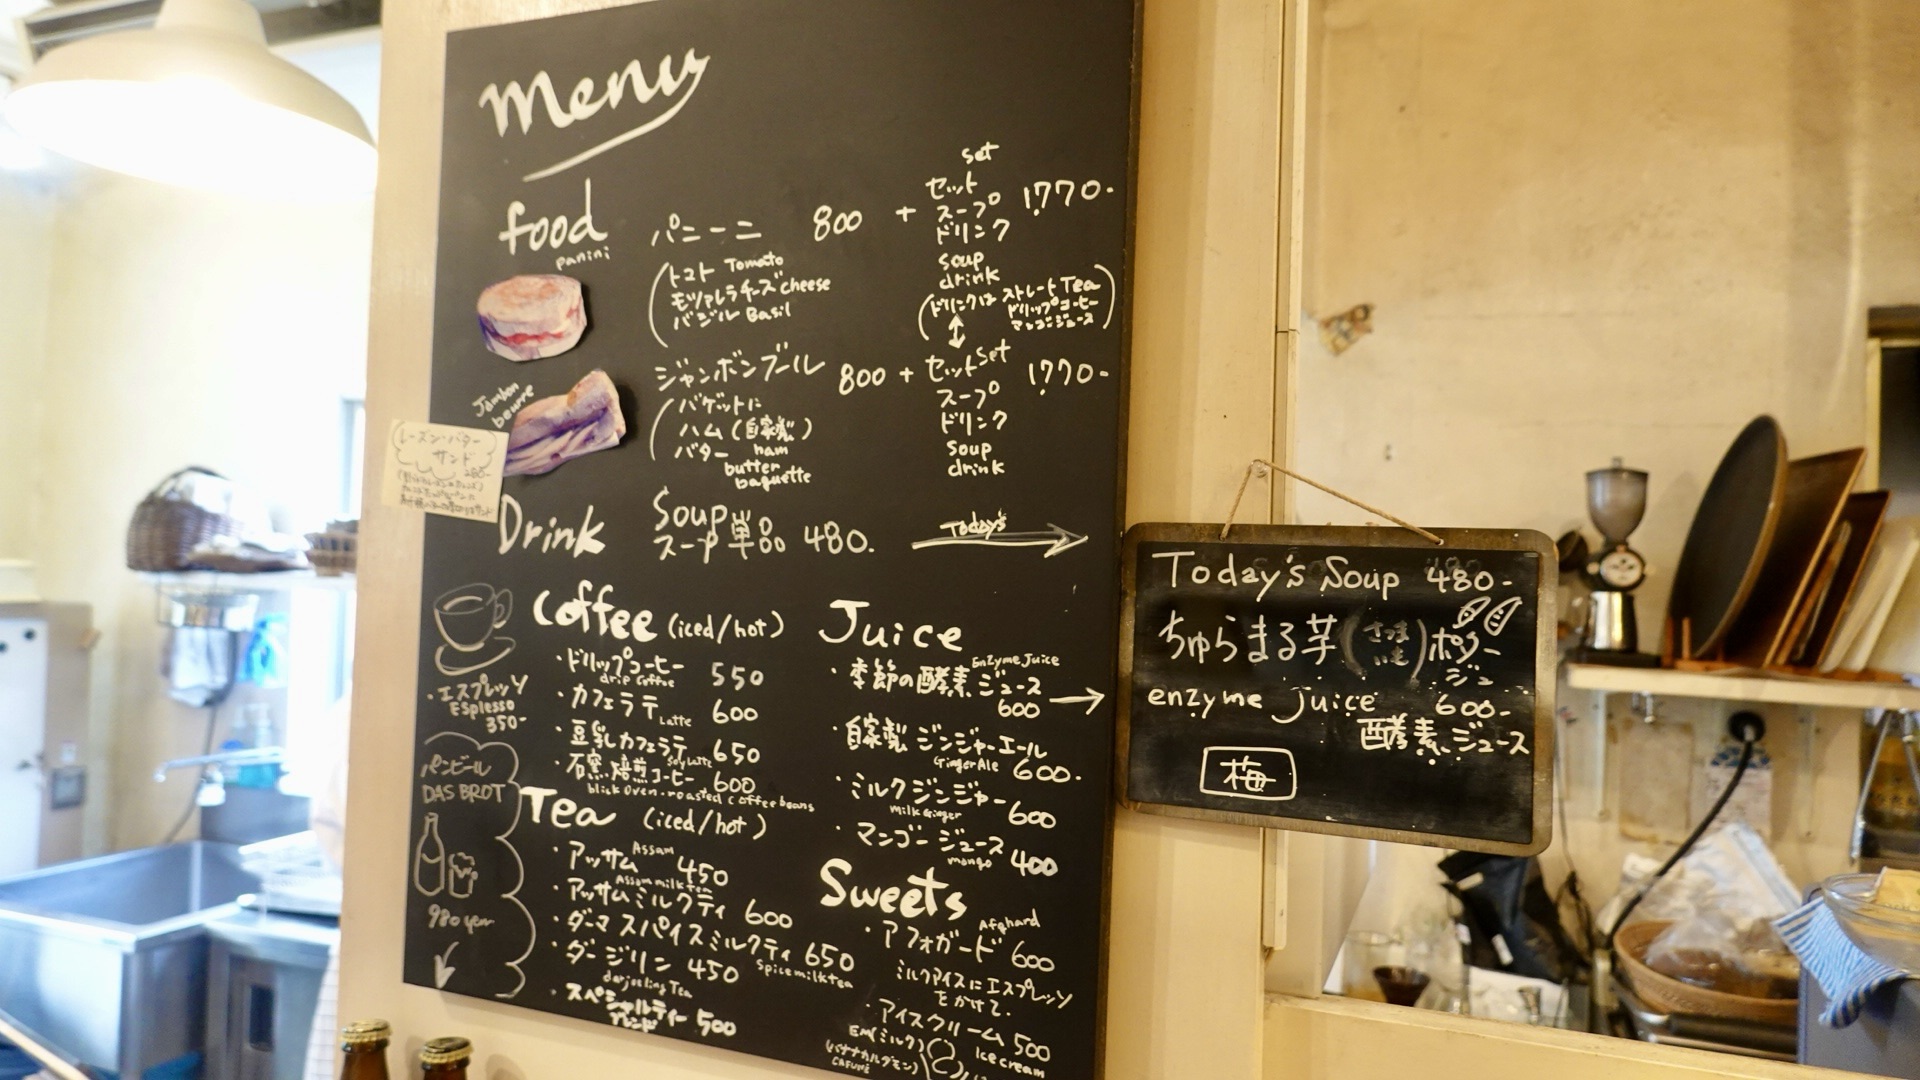 Menu
food
panini
パニーニ 800 +
set
セット
スープ
ドリンク
1770-
soup
drink
(トマト Tomato
モッツァレラチーズ cheese
バジル Basil
(ドリンクは ストレートTea
ドリップコーヒー
マンゴージュース)
Jambon
beurre
ジャンボンブール 800 + セット set 1770-
スープ
ドリンク
soup
drink
(バゲットに
ハム(自家製)
バター ham
butter
baguette
レーズン・バター
サンド
280-
Soup
スープ単品 480.
Today's
Drink
Coffee (iced/hot)
・ドリップコーヒー 550
drip coffee
・カフェラテ 600
Latte
・豆乳カフェラテ 650
Soy Latte
・石窯焙煎コーヒー 600
blick oven-roasted coffee beans
・エスプレッソ
Esplesso
350-
パンビール
DAS BROT
980 yen
Tea (iced/hot)
・アッサム Assam 450
・アッサムミルクティ 600
Assam milk tea
・ダーマスパイスミルクティ 650
Spice milk tea
・ダージリン 450
darjeeling Tea
・スペシャルティー 500
ブレンド
Juice
・季節の酵素ジュース
Enzyme Juice
600
・自家製ジンジャーエール
Ginger Ale 600.
・ミルクジンジャー 600
milk Ginger
・マンゴージュース 400
mango
Sweets
・アフォガード 600
Afghard
ミルクアイスにエスプレッソ
をかけて.
・アイスクリーム 500
Ice cream
Today's Soup 480-
ちゅらまる芋(さつまいも)ポタージュ
enzyme juice 600-
酵素ジュース
梅